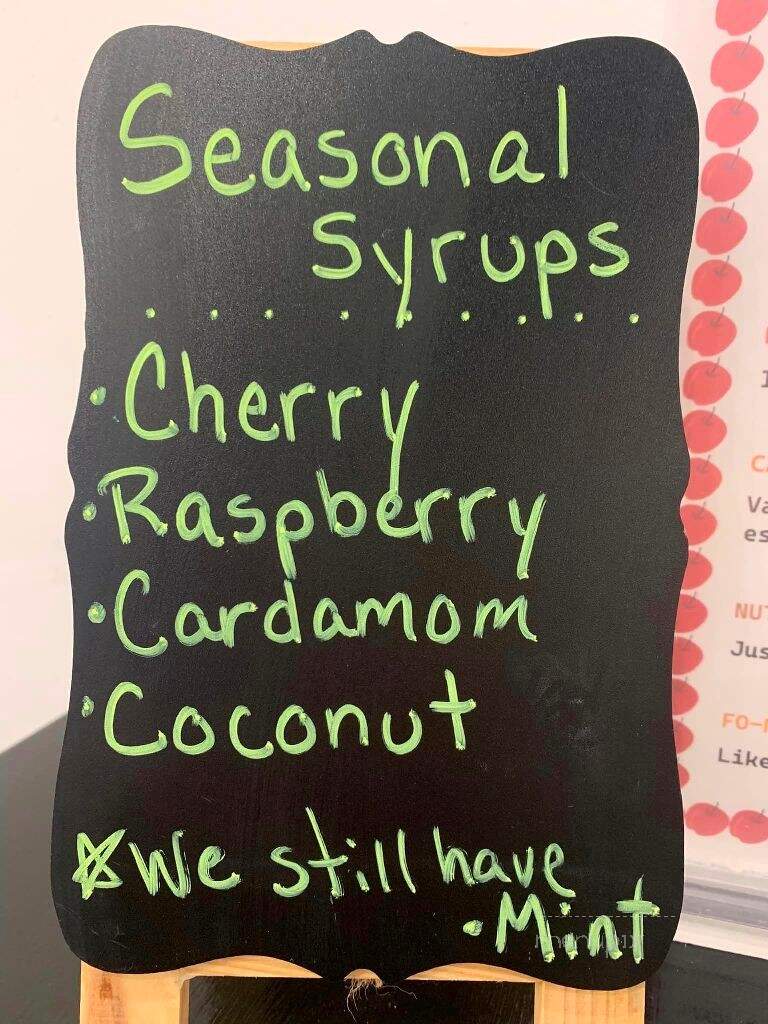 Seasonal
Syrups
• Cherry
• Raspberry
• Cardamom
• Coconut
☆ We still have
• Mint
NUT
Jus
FO-
Like